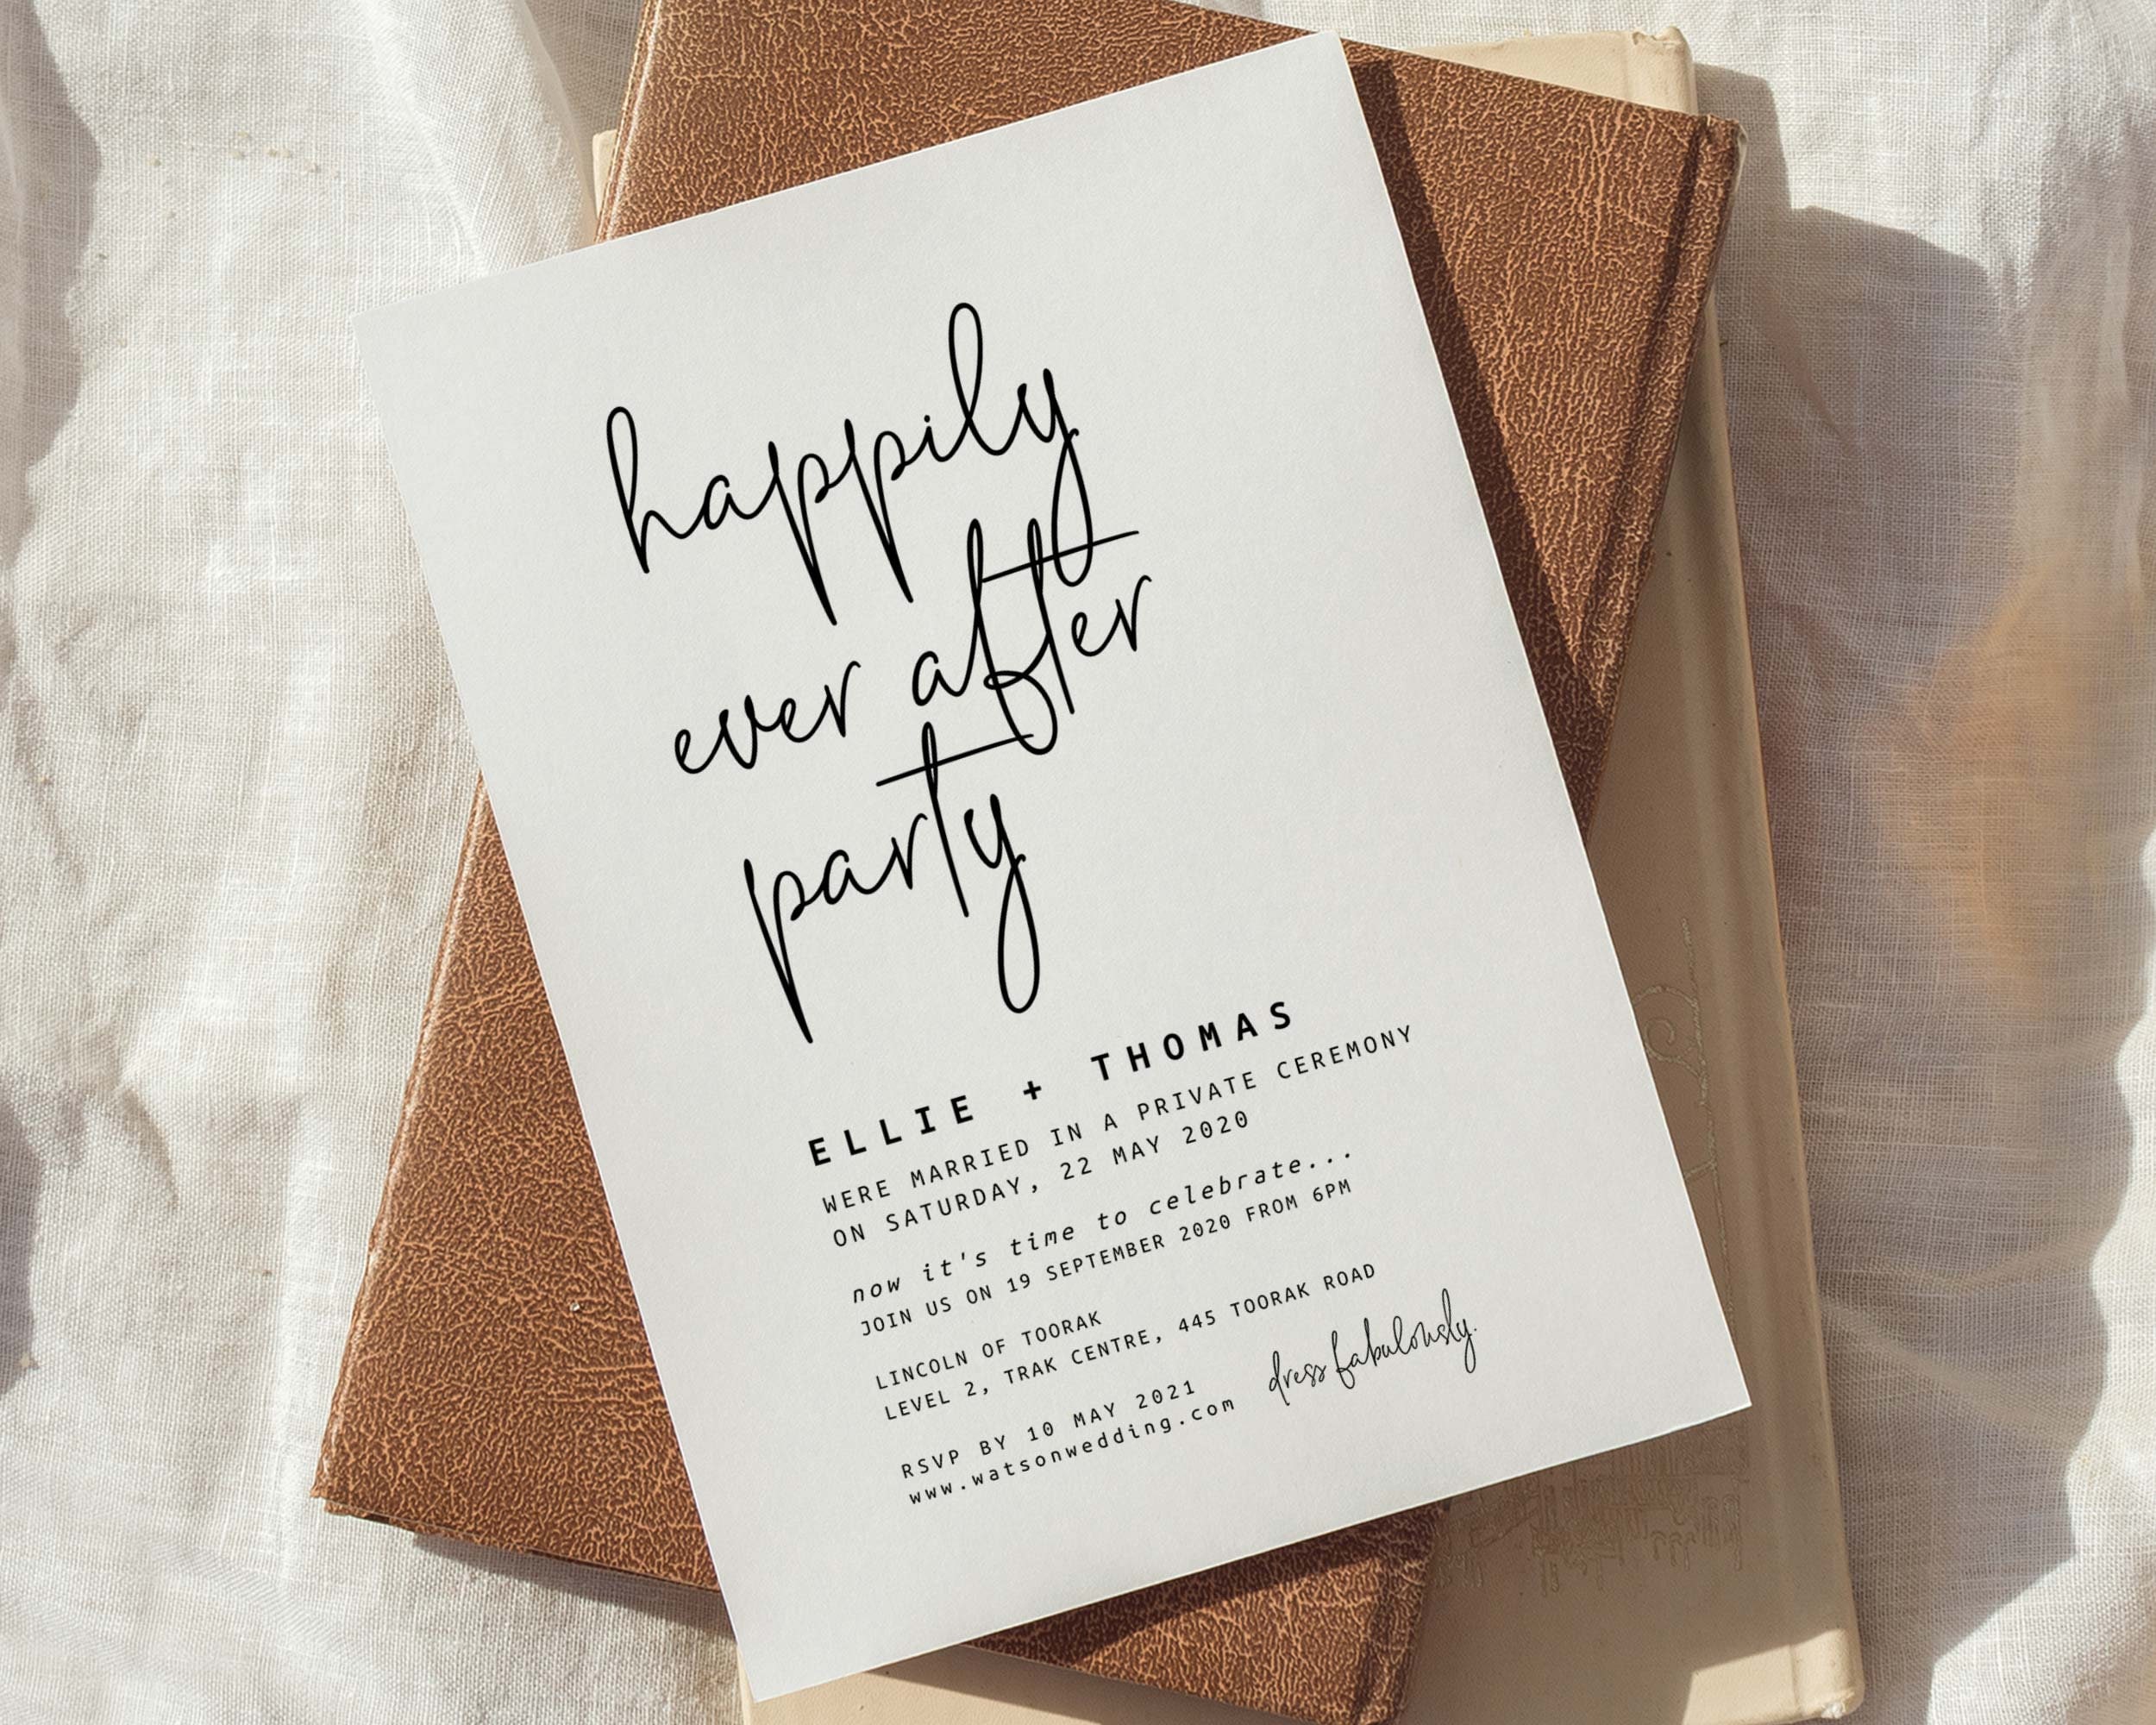 happily
ever after
party
ELLIE + THOMAS
WERE MARRIED IN A PRIVATE CEREMONY
ON SATURDAY, 22 MAY 2020
now it's time to celebrate...
JOIN US ON 19 SEPTEMBER 2020 FROM 6PM
LINCOLN OF TOORAK
LEVEL 2, TRAK CENTRE, 445 TOORAK ROAD
RSVP BY 10 MAY 2021
www.watsonwedding.com
dress fabulously.